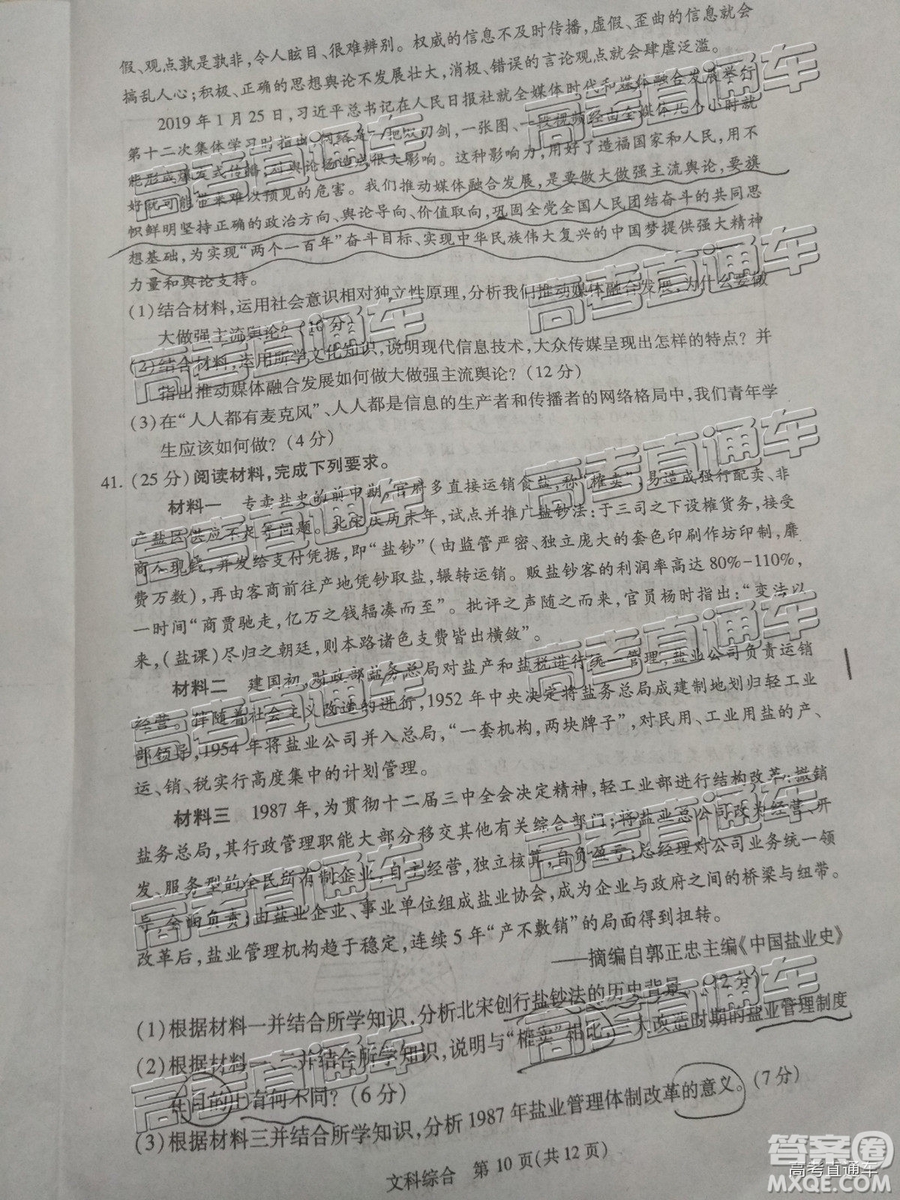 假、观点孰是孰非，令人眩目、很难辨别。权威的信息不及时传播，虚假、歪曲的信息就会
搞乱人心；积极、正确的思想舆论不发展壮大，消极、错误的言论观点就会肆虐泛滥。
2019年1月25日，习近平总书记在人民日报社就全媒体时代和媒体融合发展举行
第十二次集体学习时指出，网络是一把双刃剑，一张图、一段视频经由全媒体几个小时就
能形成爆发式传播，对舆论场造成很大影响。这种影响力，用好了造福国家和人民，用不
好就可能带来难以预见的危害。我们推动媒体融合发展，是要做大做强主流舆论，要旗
帜鲜明坚持正确的政治方向、舆论导向、价值取向，巩固全党全国人民团结奋斗的共同思
想基础，为实现“两个一百年”奋斗目标、实现中华民族伟大复兴的中国梦提供强大精神
力量和舆论支持。
(1)结合材料，运用社会意识相对独立性原理，分析我们推动媒体融合发展，为什么要做
大做强主流舆论？(10分)
(2)结合材料，运用所学文化知识，说明现代信息技术，大众传媒呈现出怎样的特点？并
指出推动媒体融合发展如何做大做强主流舆论？(12分)
(3)在“人人都有麦克风”、人人都是信息的生产者和传播者的网络格局中，我们青年学
生应该如何做？(4分)
41.(25分)阅读材料，完成下列要求。
材料一 专卖盐史的前中期，官府多直接运销食盐，称“榷卖”，易造成强行配卖、非
产盐区供应不足等问题。北宋庆历末年，试点并推广盐钞法：于三司之下设榷货务，
商人现钱，并发给支付凭据，即“盐钞”(由监管严密、独立庞大的套色印刷作坊印制，靡
费万数)，再由客商前往产地凭钞取盐，辗转运销。贩盐钞客的利润率高达80%-110%，
一时间“商贾驰走，亿万之钱辐凑而至”。批评之声随之而来，官员杨时指出：“变法以
来，(盐课)尽归之朝廷，则本路诸色支费皆出横敛”。
材料二 建国初，财政部盐务总局对盐产和盐税进行统一管理，盐业公司负责运销
经营。伴随着社会主义改造的进行，1952年中央决定将盐务总局成建制地划归轻工业
部领导，1954年将盐业公司并入总局，“一套机构，两块牌子”，对民用、工业用盐的产、
运、销、税实行高度集中的计划管理。
材料三 1987年，为贯彻十二届三中全会决定精神，轻工业部进行结构改革：撤销
盐务总局，其行政管理职能大部分移交其他有关综合部门；将盐业总公司改为经营、开
发、服务型的全民所有制企业，自主经营，独立核算，自负盈亏；总经理对公司业务统一领
导、全面负责；由盐业企业、事业单位组成盐业协会，成为企业与政府之间的桥梁与纽带。
改革后，盐业管理机构趋于稳定，连续5年“产不敷销”的局面得到扭转。
——摘编自郭正忠主编《中国盐业史》
(1)根据材料一并结合所学知识，分析北宋创行盐钞法的历史背景。(12分)
(2)根据材料一、二并结合所学知识，说明与“榷卖”相比，三大改造时期的盐业管理制度
在目的上有何不同？(6分)
(3)根据材料三并结合所学知识，分析1987年盐业管理体制改革的意义。(7分)
文科综合 第10页(共12页)
高考直通车
答案圈
MXQE.COM
高考直通车